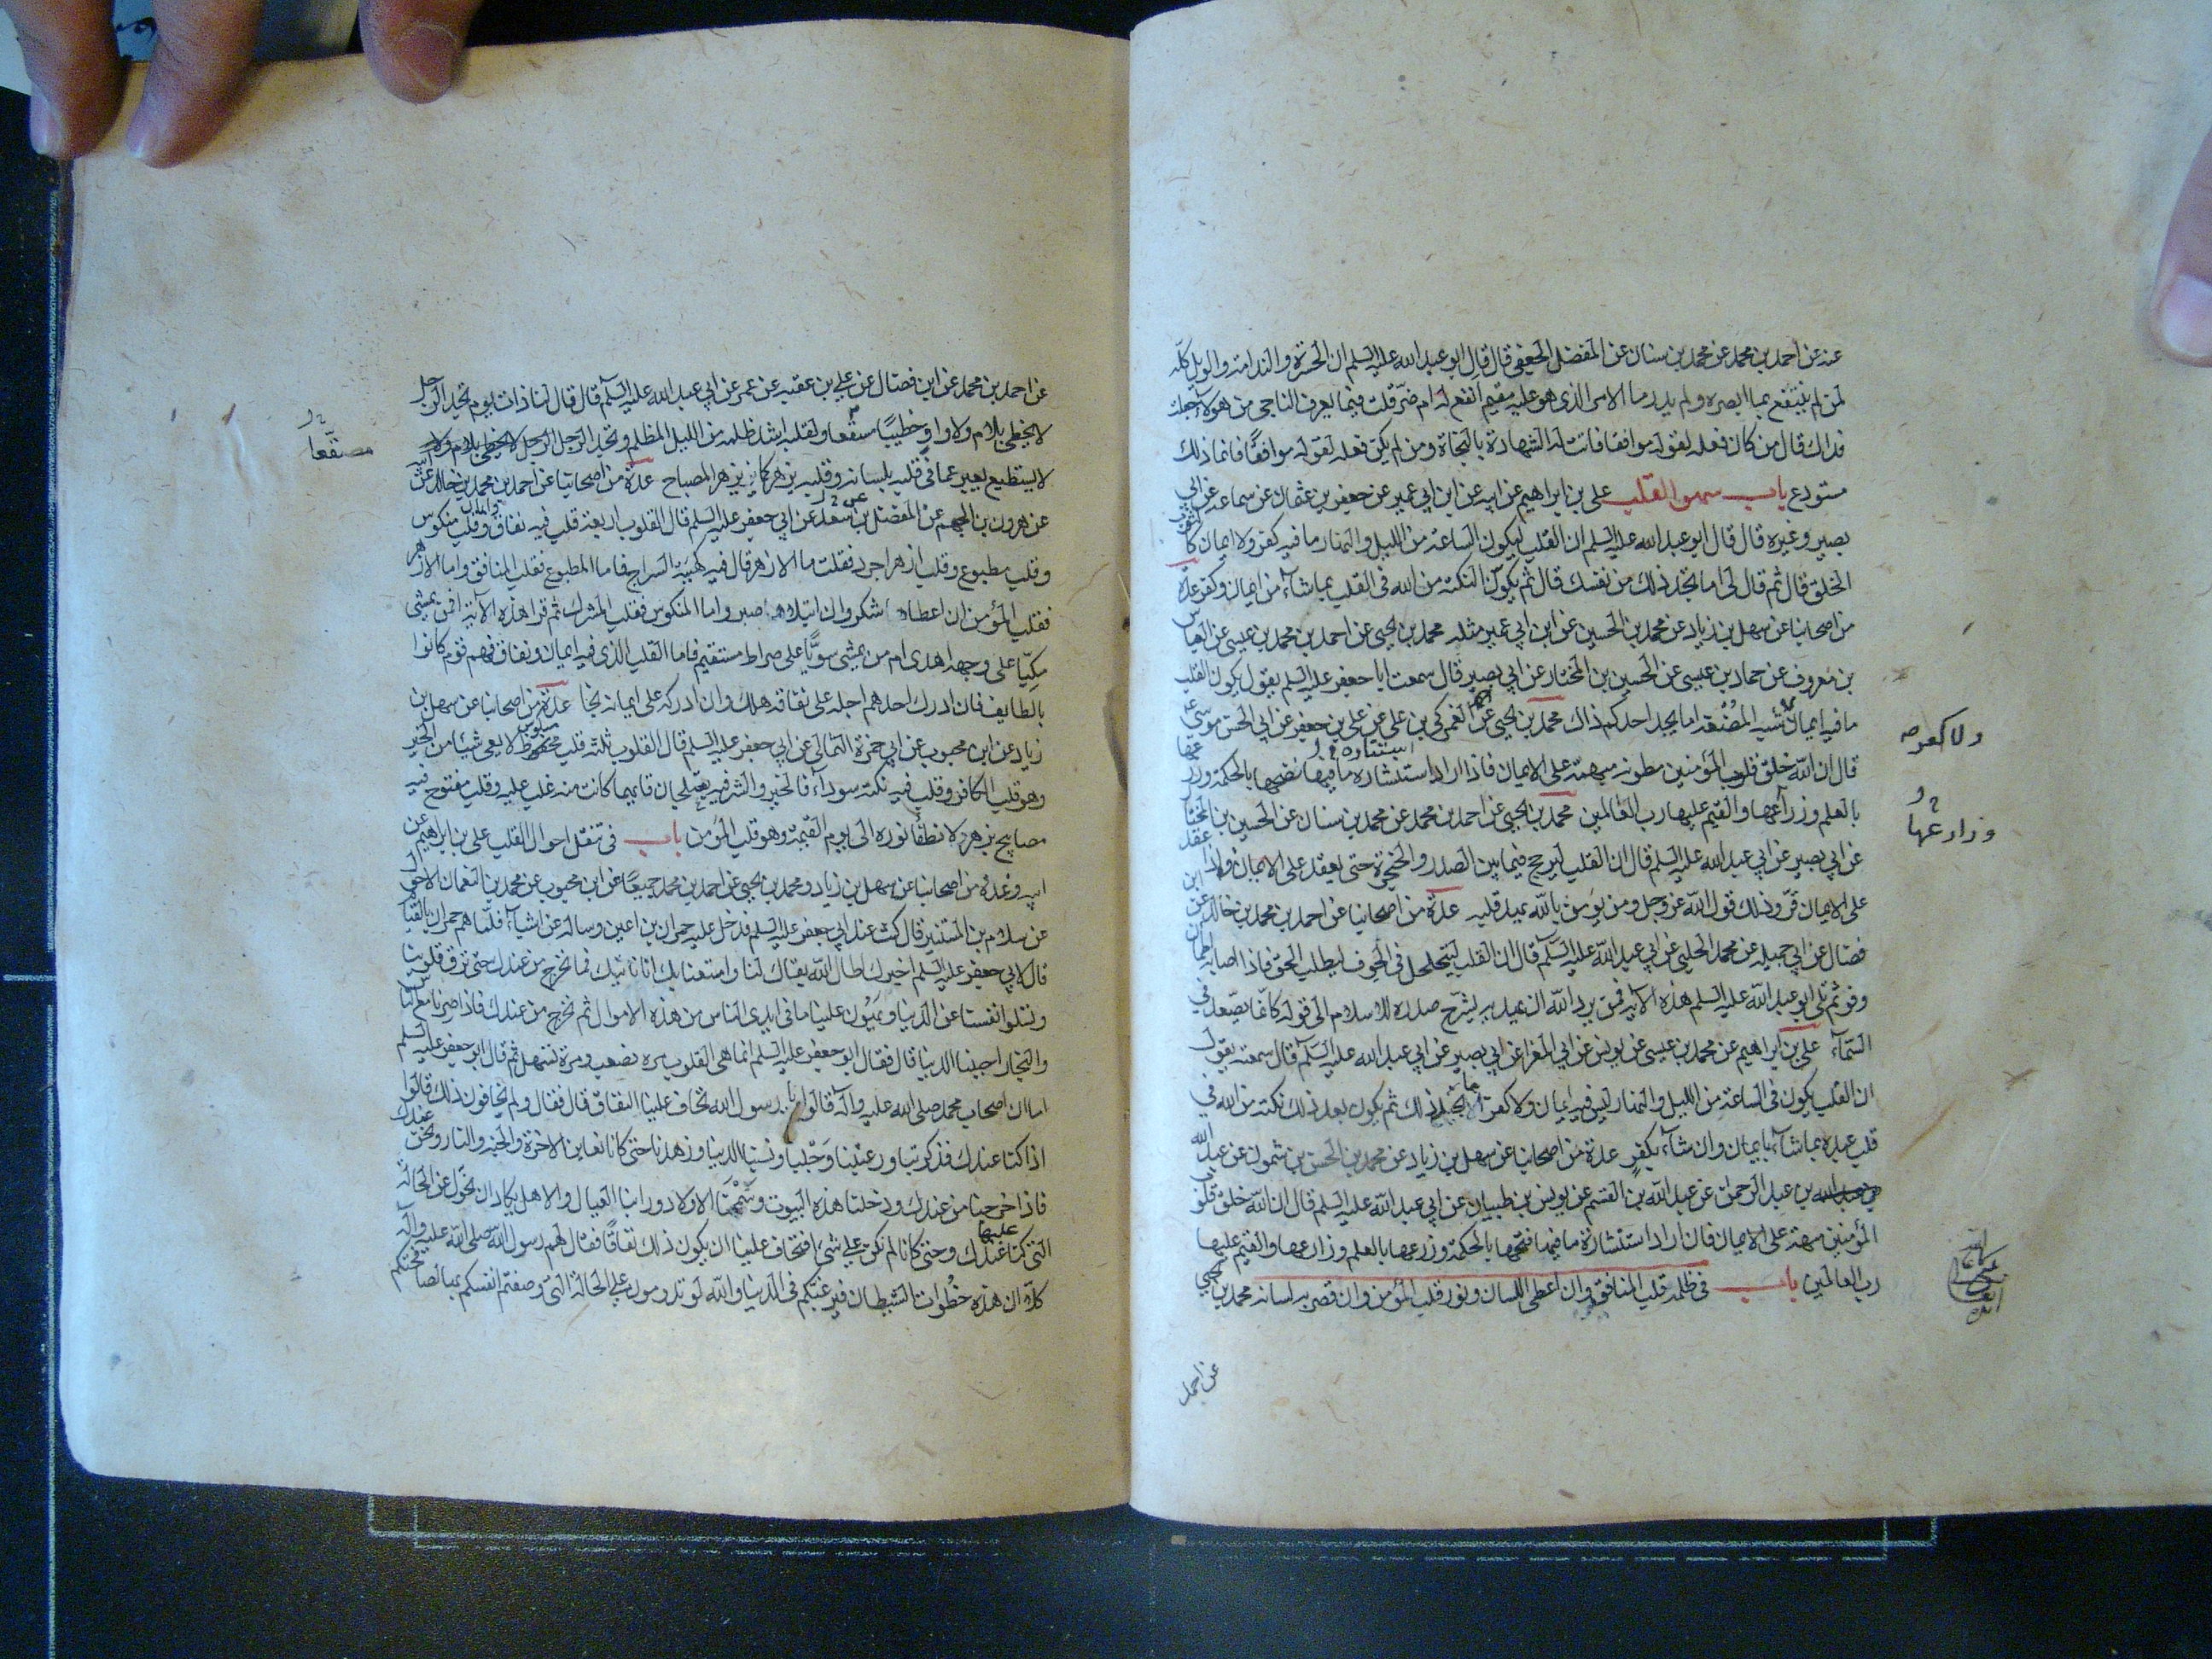 عنه عن احمد بن محمد عن محمد بن سنان عن المفضل الجعفي قال قال ابو عبد الله عليه السلم ان الحسرة والندامة والويل كله
لمن لم ينتفع بما ابصره ولم يدر ما الامر الذي هو عليه مقيم انفع له ام ضر قلت فبما يعرف الناجي من هولاء جعلت
فداك قال من كان فعله لقوله موافقا فاتت له الشهادة بالنجاة ومن لم يكن فعله لقوله موافقًا فانما ذلك
مستودع باب سهو القلب علي بن ابراهيم عن ابيه عن ابن ابي عمير عن جعفر بن عثمان عن سماعه عن ابي
بصير وغيره قال قال ابو عبد الله عليه السلم ان القلب ليكون الساعة من الليل والنهار ما فيه كفر ولا ايمان كالثوب
الخلق قال ثم قال لي اما تجد ذلك من نفسك قال ثم يكون النكتة من الله في القلب بما شاء من ايمان وكفر عدة
من اصحابنا عن سهل بن زياد عن محمد بن الحسين عن ابن ابي عمير مثله محمد بن يحيى عن احمد بن محمد بن عيسى عن العباس
بن معروف عن حماد بن عيسى عن الحسين بن المختار عن ابي بصير قال سمعت ابا جعفر عليه السلم يقول يكون القلب
ما فيه ايمان شبه المضغة اما يجد احدكم ذاك محمد بن يحيى عن العمركي بن علي عن علي بن جعفر عن ابي الحسن موسى ع
ولا كفر صح
قال ان الله خلق قلوب المؤمنين مطوية مبهمة على الايمان فاذا اراد استنشاره ما فيها نضحها بالحكمة وزرعها
استناره خ ل
بالعلم وزراعها والقيم عليها رب العالمين محمد بن يحيى عن احمد بن محمد عن محمد بن سنان عن الحسين بن المختار
وزارعها خ ل
عن ابي بصير عن ابي عبد الله عليه السلم قال ان القلب ليرجج فيما بين الصدر والحنجرة حتى يعقد على الايمان واذا عقد
على الايمان قر وذلك قول الله عز وجل ومن يؤمن بالله يهد قلبه عدة من اصحابنا عن احمد بن محمد بن خالد عن ابن
فضال عن ابي جميله عن محمد الحلبي عن ابي عبد الله عليه السلم قال ان القلب ليتجلجل في الجوف ليطلب الحق فاذا اصابه اطمأن
وقر ثم تلى ابو عبد الله عليه السلم هذه الايه فمن يرد الله ان يهديه يشرح صدره للاسلام الى قوله كانما يصعد في
السماء علي بن ابراهيم عن محمد بن عيسى عن يونس عن ابي المغرا عن ابي بصير عن ابي عبد الله عليه السلم قال سمعته يقول
ان القلب يكون في الساعة من الليل والنهار ليس فيه ايمان ولا كفر اما تجد ذلك ثم يكون بعد ذلك نكتة من الله في
قلب عبده بما شاء بايمان وان شاء بكفر عدة من اصحابنا عن سهل بن زياد عن محمد بن الحسن بن شمون عن عبد الله
بن عبد الرحمن عن عبد الله بن القسم عن يونس بن ظبيان عن ابي عبد الله عليه السلم قال ان الله خلق قلوب
المؤمنين مبهمة على الايمان فان اراد استنشارة ما فيها فتحها بالحكمة وزرعها بالعلم وزارعها والقيم عليها
رب العالمين باب في ظلمة قلب المنافق وان اعطي اللسان ونور قلب المؤمن وان قصر به لسانه محمد بن يحيى
عن احمد
عن احمد بن محمد عن ابن فضال عن علي بن عقبه عن عمر عن ابي عبد الله عليه السلم قال قال لنا ذات يوم تجد الرجل
لا يخطي بلام ولا واو خطيبًا مسقعا ولقلبه اشد ظلمه من الليل المظلم وتجد الرجل
مصقعا خ ل
لا يستطيع يعبر عما في قلبه بلسانه وقلبه يزهر كما يزهر المصباح عدة من اصحابنا عن احمد بن محمد بن خالد عن ابيه
عن هرون بن الجهم عن المفضل بن سعد عن ابي جعفر عليه السلم قال القلوب اربعة قلب فيه نفاق وايمان وقلب منكوس
وقلب مطبوع وقلب ازهر اجرد فقلت ما الازهر قال فيه كهيئة السراج فاما المطبوع فقلب المنافق واما الازهر
فقلب المؤمن ان اعطاه شكر وان ابتلاه صبر واما المنكوس فقلب المشرك ثم قرا هذه الاية افمن يمشي
مكبّا على وجهه اهدى ام من يمشي سويًّا على صراط مستقيم فاما القلب الذي فيه ايمان ونفاق فهم قوم كانوا
بالطايف فان ادرك احدهم اجله على نفاقه هلك وان ادركه على ايمانه نجا عدة من اصحابنا عن سهل بن
زياد عن ابن محبوب عن ابي حمزة الثمالي عن ابي جعفر عليه السلم قال القلوب ثلثه قلب منكوس لا يعي شيئا من الخير
وهو قلب الكافر وقلب فيه نكتة سوداء فالخير والشر فيه يعتلجان فايهما كانت منه غلب عليه وقلب مفتوح فيه
مصابيح يزهر ولا تطفأ نوره الى يوم القيمة وهو قلب المؤمن باب في تنقل احوال القلب علي بن ابراهيم عن
ابيه وعدة من اصحابنا عن سهل بن زياد ومحمد بن يحيى عن احمد بن محمد جميعًا عن ابن محبوب عن محمد بن النعمان الاحول
عن سلام بن المستنير قال كنت عند ابي جعفر عليه السلم فدخل عليه حمران بن اعين وساله عن اشياء فلما هم حمران بالقيام
قال لابي جعفر عليه السلم اخبرك اطال الله بقاك لنا وامتعنا بك انا ناتيك فما نخرج من عندك حتى ترق قلوبنا
وتسلوا انفسنا عن الدنيا ويهون علينا ما في ايدي الناس من هذه الاموال ثم نخرج من عندك فاذا صرنا مع الناس
والتجار احببنا الدنيا قال فقال ابو جعفر عليه السلم انما هي القلوب مره تصعب ومرة تسهل ثم قال ابو جعفر عليه السلم
اما ان اصحاب محمد صلى الله عليه واله قالوا يا رسول الله نخاف علينا النفاق قال فقال ولم تخافون ذلك قالوا
اذا كنا عندك فذكرتنا ورغبتنا وجلنا ونسينا الدنيا وزهدنا حتى كانا نعاين الاخرة والجنه والنار ونحن عندك
فاذا خرجنا من عندك ودخلنا هذه البيوت وشممنا الاولاد وراينا العيال والاهل يكاد ان نحول عن الحالة
التي كنا عليها عندك وحتى كانا لم نكن على شيء افتخاف علينا ان يكون ذلك نفاقًا فقال لهم رسول الله صلى الله عليه واله
كلا ان هذه خطوات الشيطان فيرغبكم في الدنيا والله لو تدومون على الحالة التي وصفتم انفسكم بها لصافحتكم